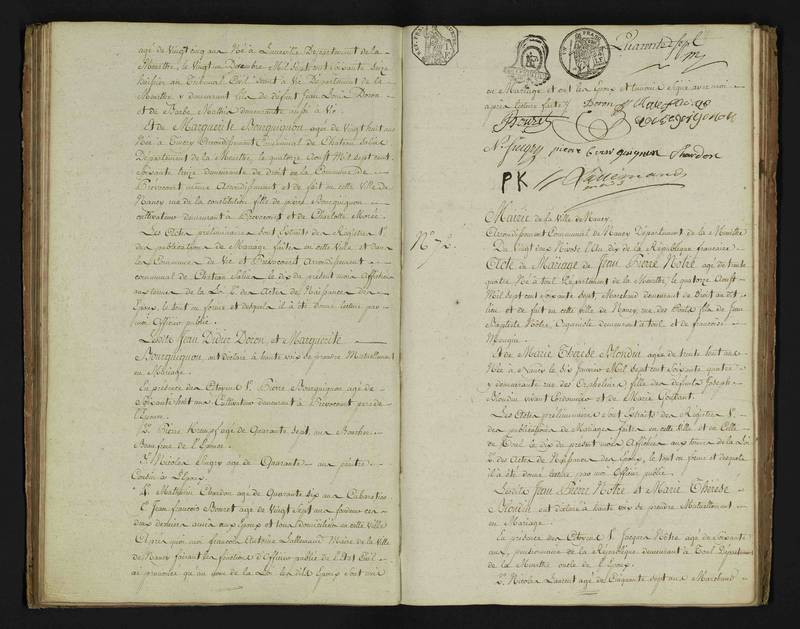 agé de Vingt cinq ans Né à Luneville Département de la
Meurthe, le Vingt un Decembre Mil Sept cent soixante seize
huissier au Tribunal Civil séant à Vic Département de la
Meurthe y demeurant fils de défunt Jean Louis Doron
et de Barbe Mathis demeurante aussi à Vic
Et de Marguerite Bourguignon agée de Vingt huit ans
Née à Arrondissement Communal de Chateau Salins
Département de la Meurthe, le quatorze Aoust Mil sept cent
soixante treize demeurante de droit en la Commune de
même Arrondissement et de fait en cette Ville de
Nancy rue de la constitution, fille de pierre Bourguignon
cultivateur demeurant à et de Charlotte
Les Actes préliminaires sont Extraits des Registres 1°
des publications de Mariage faites en cette Ville et dans
la Commune de Vic et Arrondissement
communal de Chateau Salins le dix du présent mois Affichées
aux termes de la Loi 2° des Actes de Naissances des
Epoux, le tout en forme et desquels il a été donné lecture par
moi Officier public.
Lesdits Jean Didier Doron, et Marguerite
Bourguignon, ont déclaré à haute voix se prendre Mutuellement
en Mariage.
En présence des Citoyens 1° Pierre Bourguignon agé de
soixante huit ans Cultivateur demeurant à pere de
l'Epouse.
2° Pierre agé de Quarante sept ans Boucher
Beaufrere de l'Epouse
3° Nicolas agé de Quarante ans peintre
Cousin à l'Epoux
4° Mathieu Chardon agé de Quarante six ans Cabaretier
Et Jean francois Bouret agé de Vingt Sept ans faiseur ces
deux derniers amis aux Epoux et tous domiciliés en cette Ville
Apres quoi moi francois Antoine Lallemand Maire de la Ville
de Nancy faisant les fonctions d'Officier public de l'Etat Civil
ai prononcé qu'au nom de la Loi les dits Epoux sont unis
Quarante sept
en Mariage et ont les Epoux et temoins Signé avec moi
apres lecture faite Doron Margueritte
Bourguignon
Bouret
N. pierre bourguignon Chardon
PK Lallemand
Mairie de la Ville de Nancy
Arrondissement Communal de Nancy Département de la Meurthe
N° 72. Du Vingt deux Nivose l'An dix de la République francaise
Acte de Mariage de Jean Pierre Notre agé de trente
quatre Né à Toul Département de la Meurthe, le quatorze Aoust
Mil sept cent soixante sept, Marchand demeurant de droit audit
lieu et de fait en cette ville de Nancy, rue des Ponts fils de Jean
Baptiste Notre, Organiste demeurant à Toul et de francoise
Mougin
Et de Marie Thérese Blondin agée de trente huit ans
Née à Nancy le dix Janvier Mil Sept cent soixante quatre
y demeurante rue des Orphelines fille des défunts Joseph
Blondin vivant Cordonnier et de Marie
Les Actes préliminaires sont Extraits des Registres 1°
des publications de Mariages faites en cette Ville et en Celle
de Toul le dix du présent mois Affichées aux termes de la Loi
2° des Actes de Naissance des Epoux, le tout en forme et desquels
il a été donné lecture par moi Officier public.
Lesdits Jean Pierre Notre et Marie Thérese
Blondin ont déclaré à haute voix se prendre Mutuellement
en Mariage.
En présence des Citoyens 1° Jacques Notre agé de soixante
ans, pensionnaire de la République demeurant à Toul Département
de la Meurthe oncle de l'Epoux.
2° Nicolas Laurent agé de Cinquante sept ans Marchand